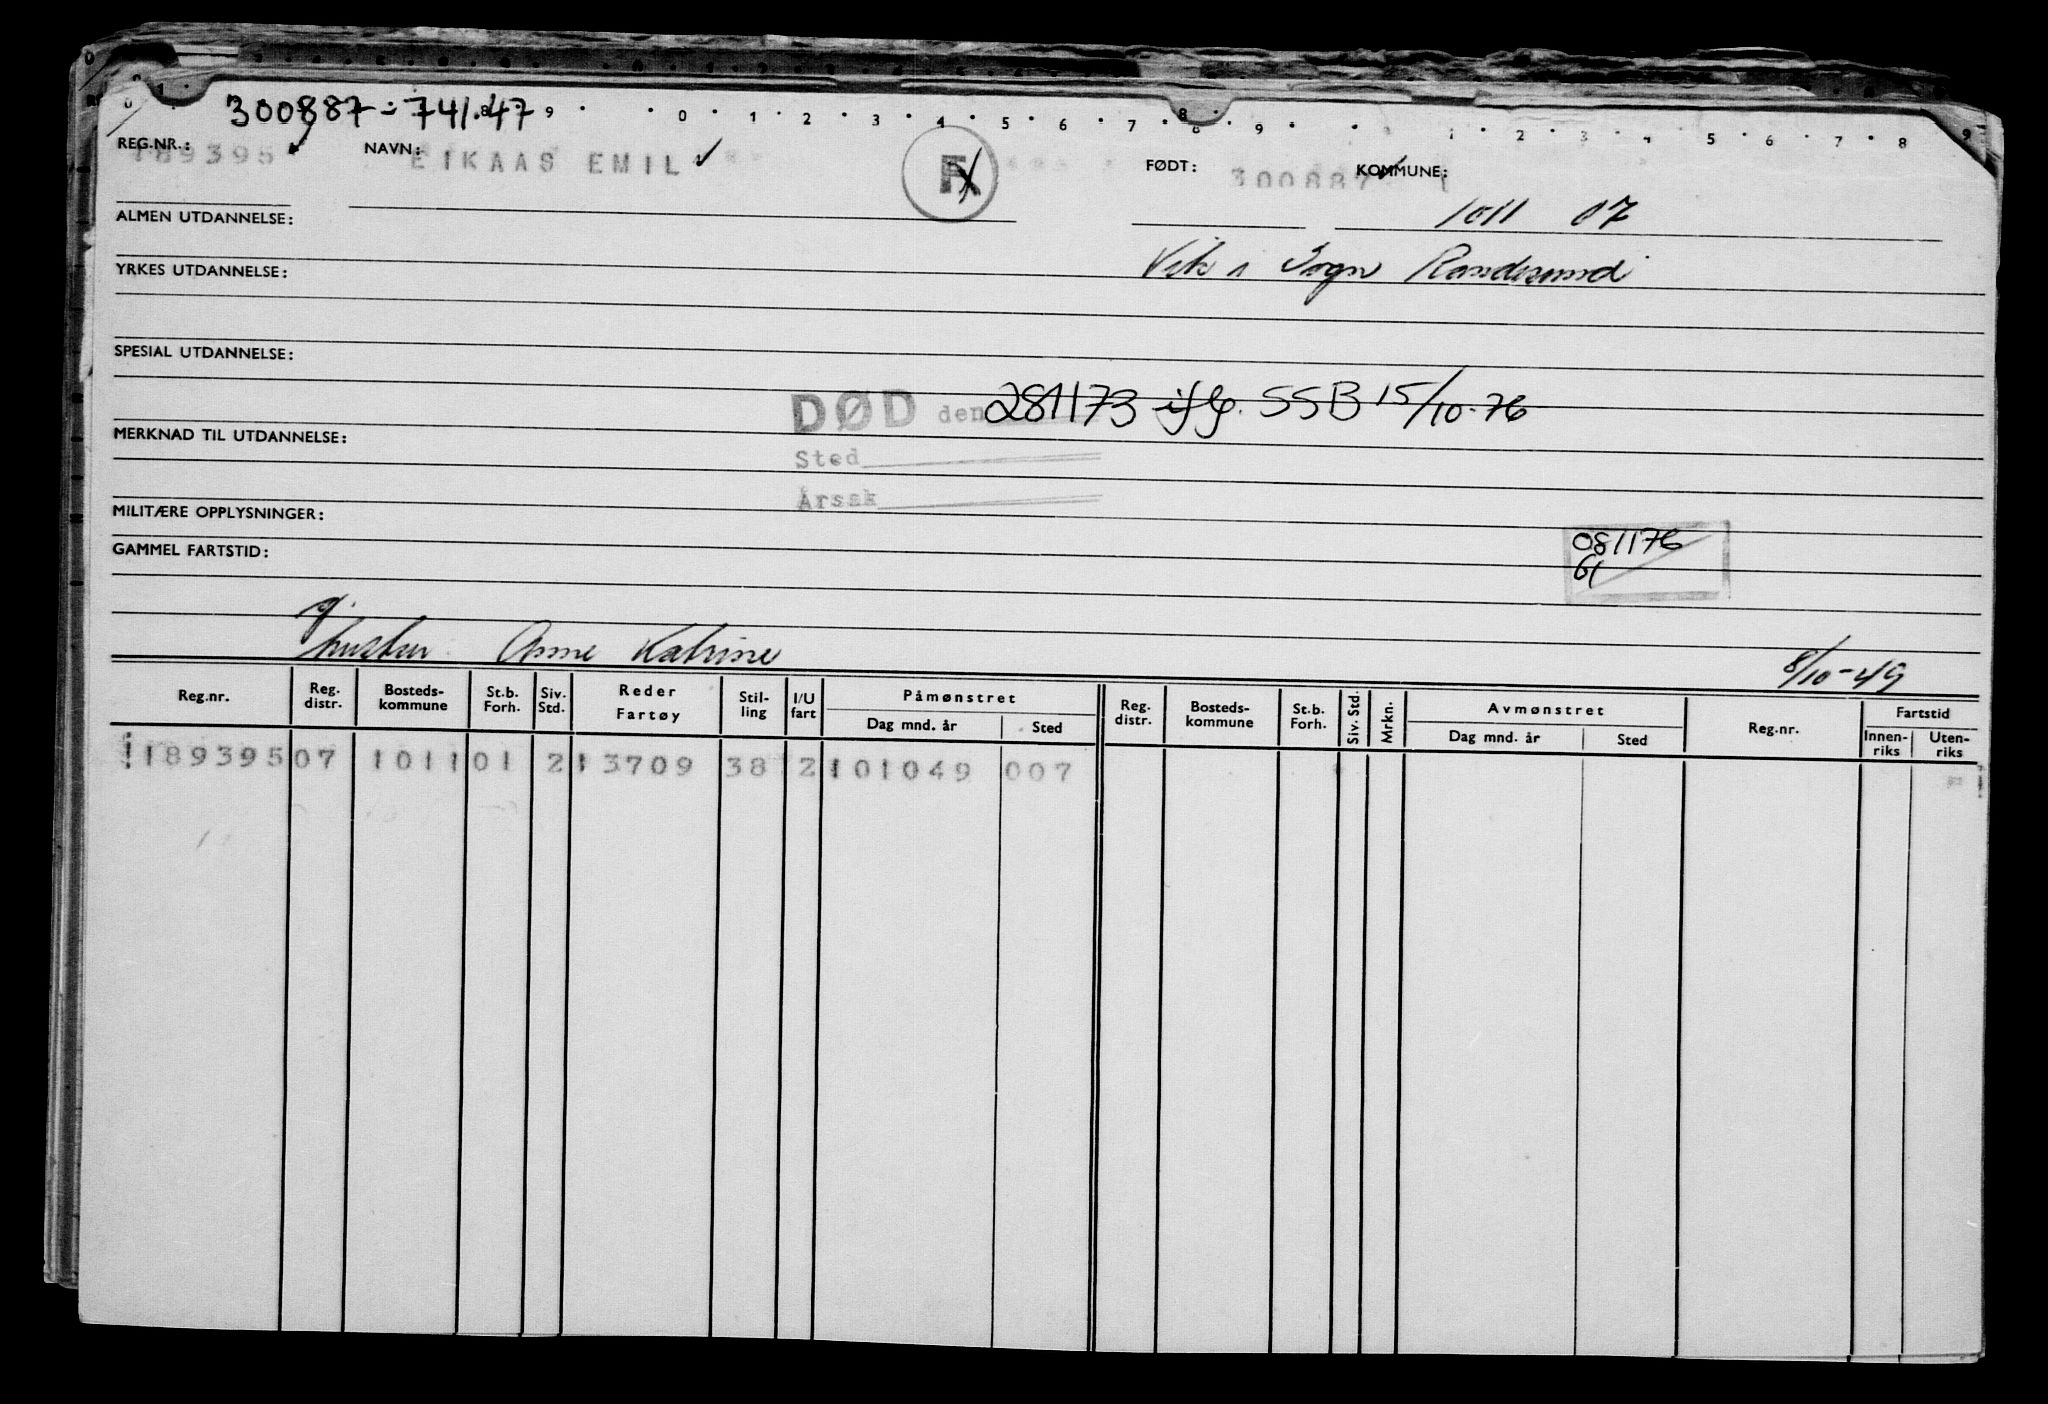 300887-741.47
8 9 0 1 2 3 4 5 6 7 8 9 1 2 3 4 5 6 7 8 9
REG.NR.: 189395 NAVN: EIKAAS EMIL F FØDT: 300887 KOMMUNE: 1
ALMEN UTDANNELSE: 1011 07
YRKES UTDANNELSE: Vik i Sogn Randesund
SPESIAL UTDANNELSE:
DØD den 281173 iflg. SSB 15/10-76
MERKNAD TIL UTDANNELSE:
Sted
Årsak
MILITÆRE OPPLYSNINGER:
081176
GAMMEL FARTSTID:
g.
hustru Anne Katrine 8/10-49
Reg.nr. Reg. distr. Bosteds-kommune St.b. Forh. Siv. Std. Reder Fartøy Stil-ling I/U fart Påmønstret Dag mnd. år Sted Reg. distr. Bosteds-kommune St.b. Forh. Siv. Std. Mrkn. Avmønstret Dag mnd. år Sted Reg.nr. Fartstid Innen-riks Uten-riks
189395 07 1011 01 2 13709 38 2 101049 007